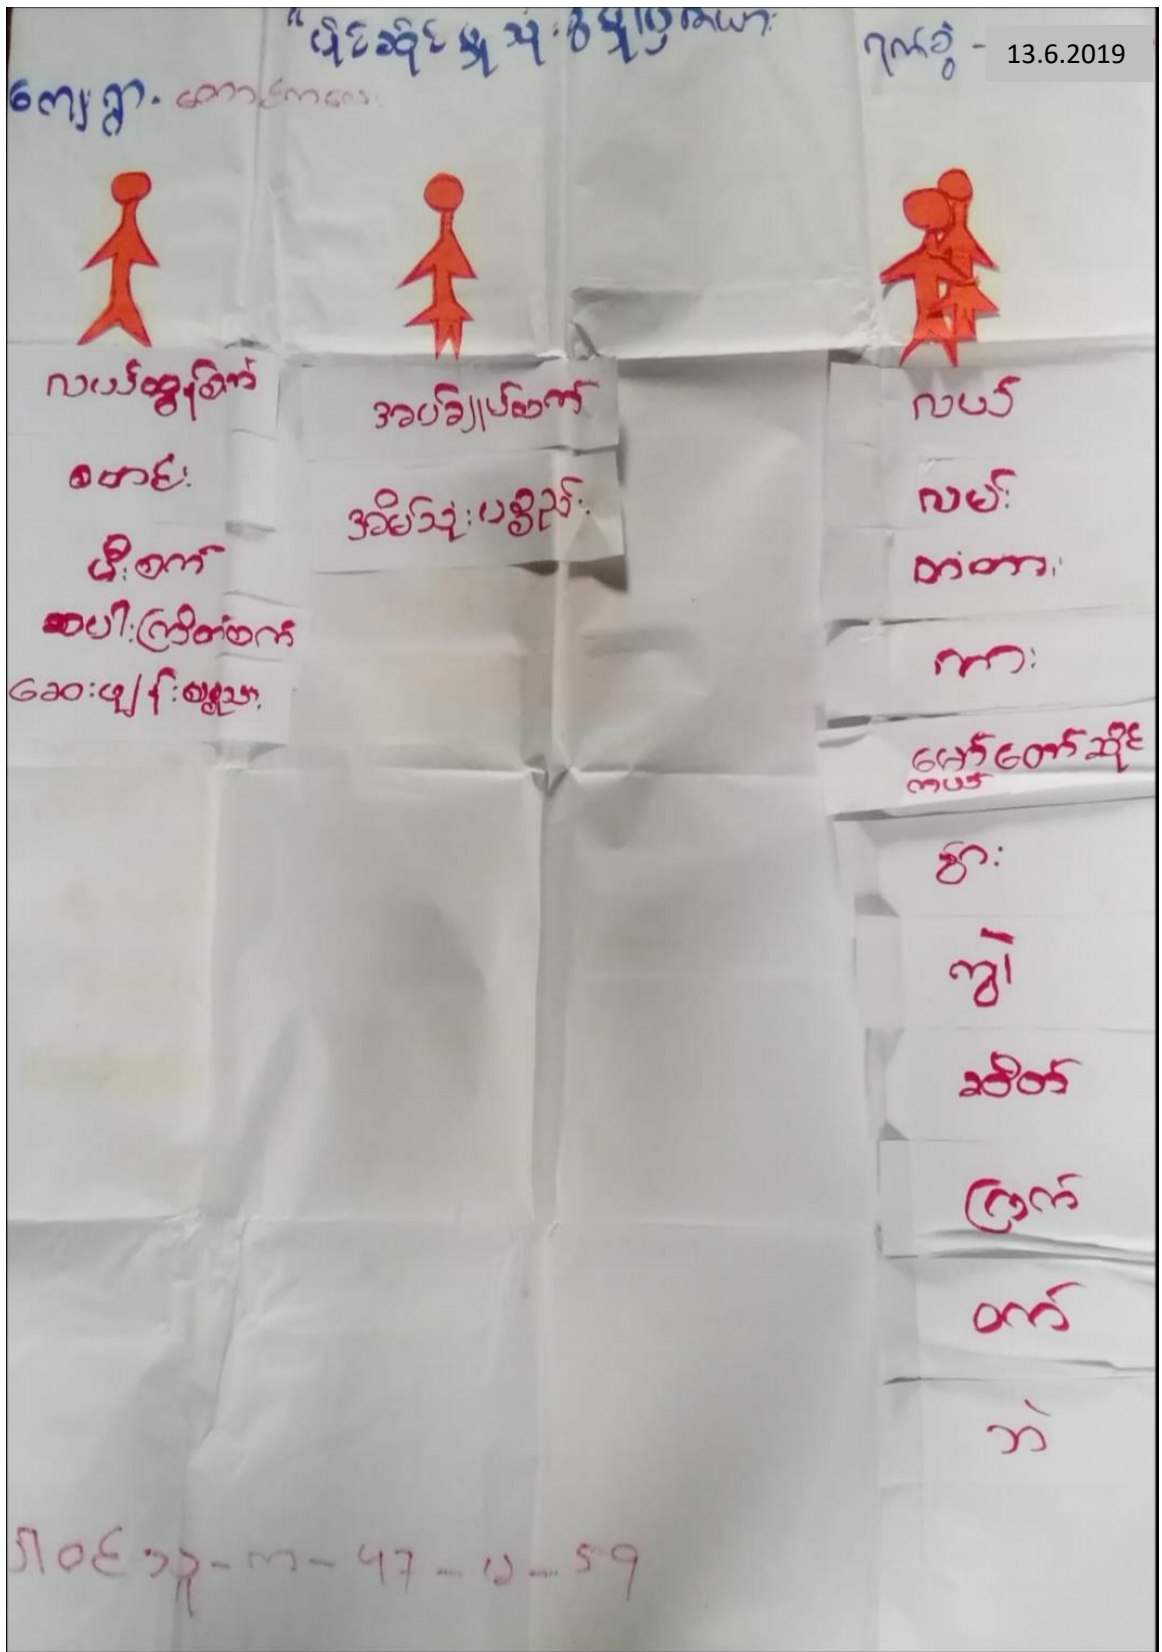 "ပိုင်ဆိုင်မှု သုံးစွဲမှုပြဇယား
ရက်စွဲ - 13.6.2019
ကျေးရွာ - တောင်ကလေး
လယ်ထွန်စက်
စတင်း
မီးစက်
စပါးကြိတ်စက်
ဆေးဖျန်း
အပ်ချုပ်စက်
အိမ်သုံးပစ္စည်း
လယ်
လမ်း
တံတား
ကား
မော်တော်ဆိုင်ကယ်
နွား
ကျွဲ
ဆိတ်
ကြက်
ဝက်
ဘဲ
ပါဝင်သူ - က - 47 - မ - 59